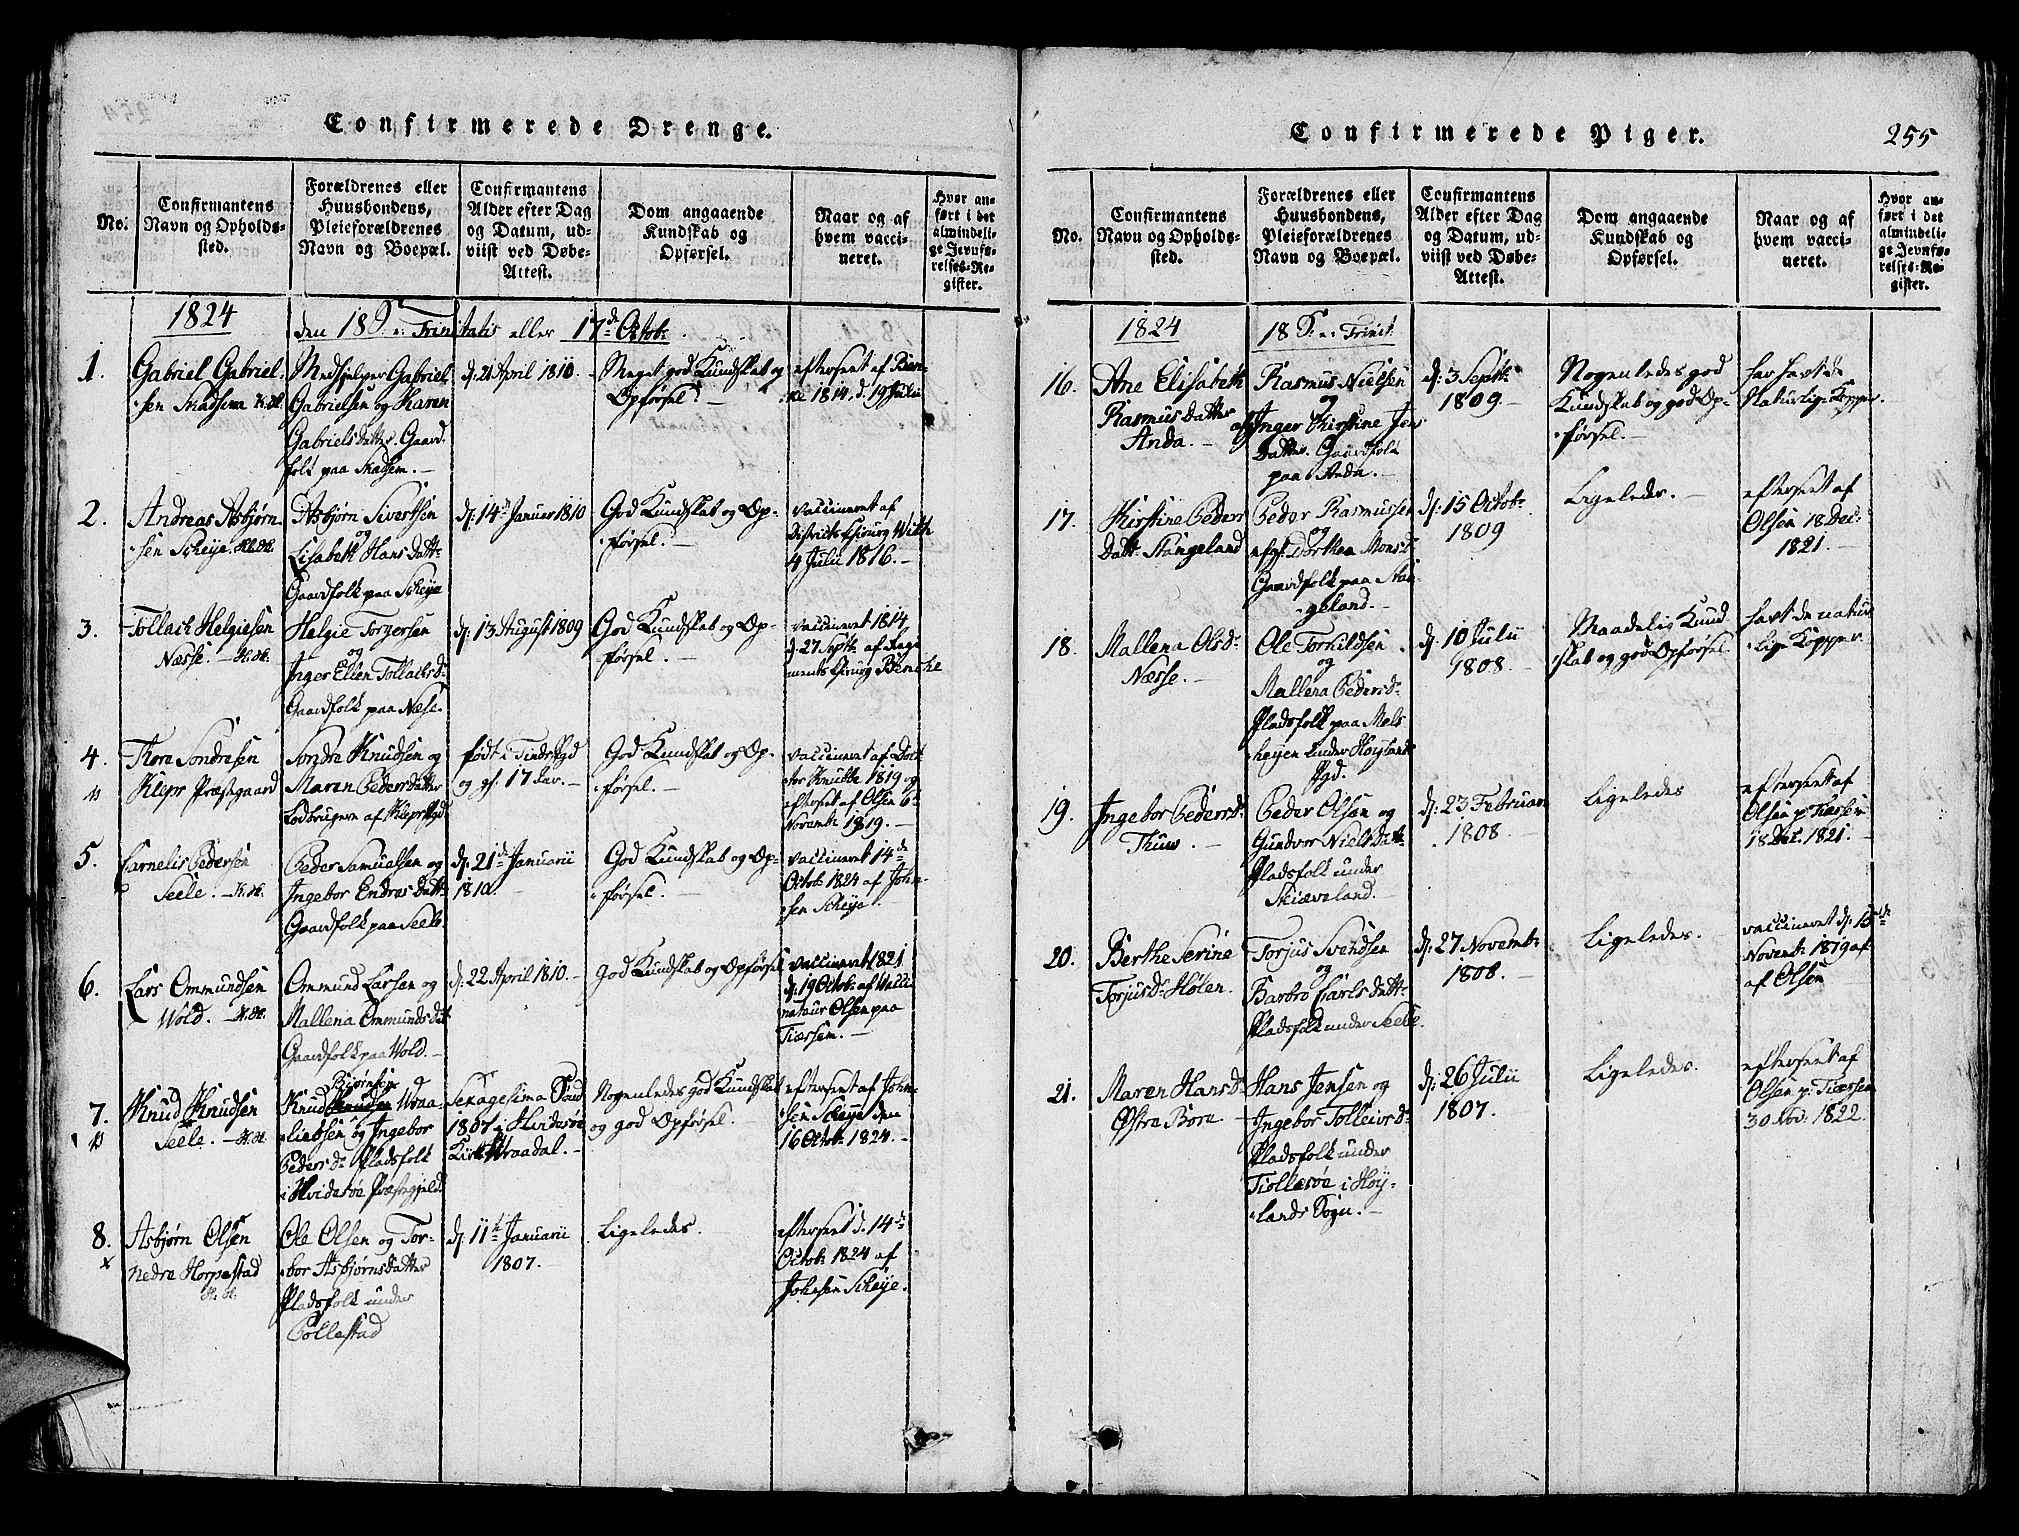 Confirmerede Drenge.
No.
Confirmantens
Navn og Opholds-
sted.
Forældrenes eller
Huusbondens,
Pleieforældrenes
Navn og Boepæl.
Confirmantens
Alder efter Dag
og Datum, ud-
viist ved Døbe-
Attest.
Dom angaaende
Kundskab og
Opførsel.
Naar og af
hvem vacci-
neret.
Hvor an-
ført i det
almindeli-
ge Jevnfø-
relses-Re-
gister.
1824
den 18 S. e. Trinitatis eller 17de Octob:
1.
Gabriel Gabriel-
sen Skadsem
Medhjelper Gabriel
Gabrielsen og Karen
Gabrielsdatter. Gaard-
folk paa Skadsem. -
d: 21 April 1810. -
Meget god Kundskab og
Opførsel. -
efterseet af
1814. d. 19 Julii
2.
Andreas Asbjørn-
sen Scheye.
Asbjørn Sivertsen
og
Lisabeth Hansdatt:
Gaardfolk paa Scheye
d: 14de Januar 1810
God Kundskab og Op-
førsel. -
vaccineret af
Districts Chirurg With
4 Julii 1816. -
3.
Tollack Helgiesen
Næsse. -
Helgie Torgersen
og
Inger Elien Tollachsd:
Gaardfolk paa Næse.
d: 13 August 1809
God Kundskab og Op-
førsel. -
vaccineret 1814
d. 27 Septb: af Rege-
ments Chirurg
4.
Thore Sondresen
Klepp Præstegaard
Sondre Knudsen og
Maren Pedersdatter
Lodbrugere af Klepp Pgd
født i Tinds Pgd
og gl. 17 Aar. -
God Kundskab og Op-
førsel. -
vaccineret af Doc-
tor Knutte 1819 og
efterseet af Olsen 6te
Novembr 1819. -
5.
Cornelis Pedersen
Seele. -
Peder Samuelsen og
Ingebor Endresdatt:
Gaardfolk paa Seele
d: 21de Januarii
1810.
God Kundskab og Op-
førsel. -
vaccineret 14de
Octob: 1824 af John-
sen Scheye. -
6.
Lars Ommundsen
Wold. -
Ommund Larsen og
Mallena Ommundsdat
Gaardfolk paa Wold. -
d: 22 April 1810. -
god Kundskab og Opførsel
vaccineret 1821
d: 19 Octob: af Vacci-
nateur Olsen paa
Tiærsem. -
7.
Knud Knudsen
Seele. -
Bjørnsen
Knud Knudsen Wraa-
liebsen og Ingebor
Pedersd: Pladsfolk
i Hvidesøe Præstegjeld.
Sexagesima Sønd
1807 i Hvidesøe
Kirke Wraadal. -
Nogenledes god Kundskab
og god Opførsel. -
efterseet af John-
sen Scheye den
16 Octob: 1824. -
8.
x
Asbjørn Olsen
Nedre Horpestad
Ole Olsen og Tor-
bor Asbjørnsdatter
Pladsfolk under
Pollestad
d: 11te Januarii
1807. -
Ligeledes.
efterseet d. 14de
Octob: 1824 af
Johnsen Scheye.
Confirmerede Piger.
255
No.
Confirmantens
Navn og Opholds-
sted.
Forældrenes eller
Huusbondens,
Pleieforældrenes
Navn og Boepæl.
Confirmantens
Alder efter Dag
og Datum, ud-
viist ved Døbe-
Attest.
Dom angaaende
Kundskab og
Opførsel.
Naar og af
hvem vacci-
neret.
Hvor an-
ført i det
almindeli-
ge Jevnfø-
relses-Re-
gister.
1824
18 S. e. Trinit.
16.
Ane Elisabeth
Rasmusdatter
Anda. -
Rasmus Nielsen
og
Inger Kirstine Jens
Datter. Gaardfolk
paa Anda. -
d: 3 Septb:
1809. -
Nogenledes god
Kundskab og god Op-
førsel. -
har havt de
Naturlige Kopper.
17.
Kirstine Peders
Datt: Stangeland
Peder Rasmussen
og
Dorthea Monsd:
Gaardfolk paa Stan-
geland. -
d: 15 Octob:
1809
Ligeledes. -
efterseet af
Olsen 18 Dec:
1821. -
18.
Mallena Olsd:
Næsse. -
Ole Torkildsen
og
Mallena Pedersd:
Pladsfolk paa Mels
heyen under Høylands
Pgd.
d: 10 Julii
1808. -
Maadelig Kund
skab og god Opførsel.
havt de natur
lige Kopper
19.
Ingebor Pedersd:
Thuu. -
Peder Olsen og
Gundvor Nielsdatt:
Pladsfolk under
Skiæveland. -
d: 23 Februar
1808. -
Ligeledes
efterseet af
Olsen p: Tiærsem
18 Dec. 1821. -
20.
Berthe Serine
Torjusd: Hølen.
Torjus Svendsen
og
Barbro Carlsdatt:
Pladsfolk under Seele.
d: 27 Novembr
1808. -
Ligeledes.
vaccineret d: 15de
Novemb: 1819 af
af Olsen
21.
Maren Hansd:
Øfstre Bore
Hans Jensen og
Ingebor Tolleivsd:
Pladsfolk under
Tiollesøe i Høy-
lands Sogn. -
d: 26 Julii
1807.
Ligeledes.
efterseet af
Olsen p: Tiærsem
30 Nov. 1822.